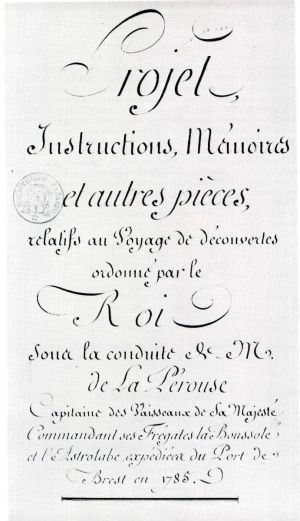 Projet,
Instructions, Mémoires
et autres pièces,
relatifs au Voyage de découvertes
ordonné par le
Roi
sous la conduite de M.
de La Pérouse
Capitaine des Vaisseaux de Sa Majesté
Commandant ses Frégates la Boussole
et l'Astrolabe, expédiées du Port de
Brest en 1785.